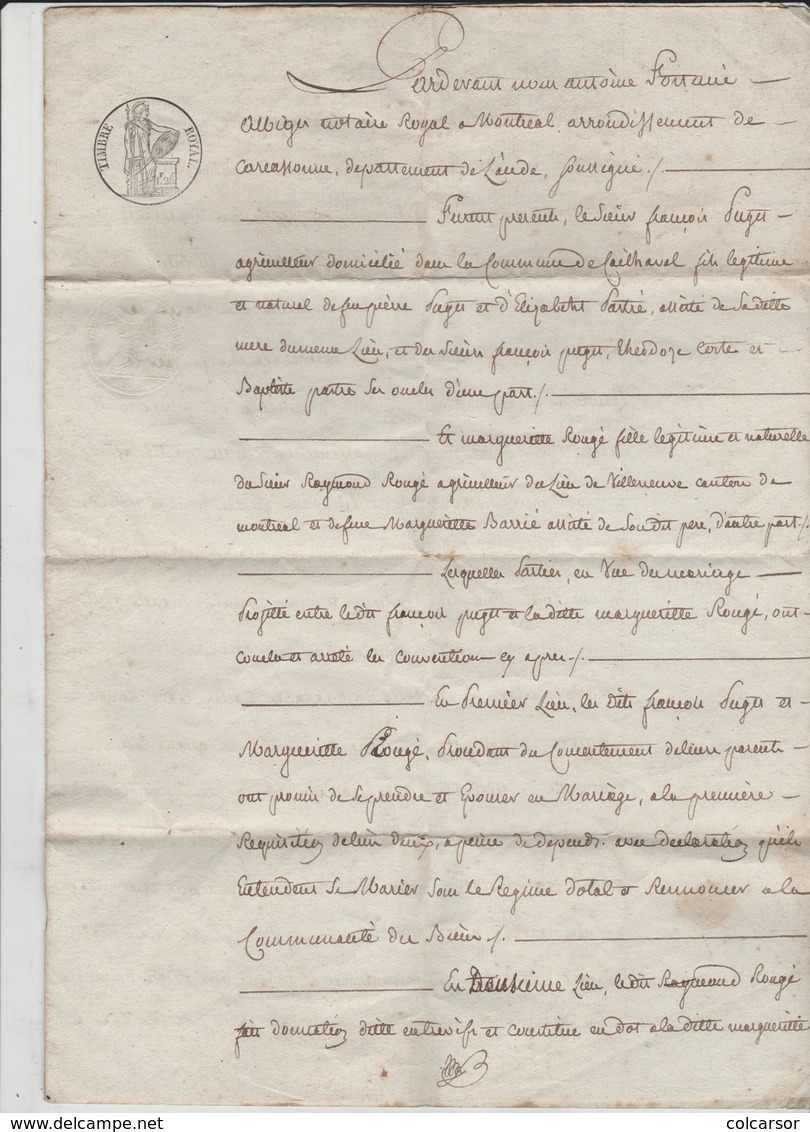 Pardevant nous antoine Fortuné
Albiges notaire Royal a Montreal arrondissement de
TIMBRE ROYAL
Carcassonne, departement de L'aude, soussigné ./.
Furent presents, le Sieur françois Puget
agriculteur domicilié dans la Commune de Cailhaval fils legitime
et naturel de feu pièrre Puget et d'Elizabeth Partré, assisté de Sa ditte
mere du meme Lieu, et des Sieurs françois puget, theodoze Certe et
Baptiste partre Ses oncles d'une part ./.
Et margueritte Rougé fille legitime et naturelle
du Sieur Raymond Rougé agriculteur du Lieu de Villeneuve canton de
montreal et de feue Margueritte Barrié assisté de Son dit pere, d'autre part ./.
Lesquelles Parties, en Vue du mariage
Projetté entre le dit françois puget et la ditte margueritte Rougé, ont
conclu et arreté les conventions cy apres ./.
En Premier Lieu, les dits françois Puget et
Margueritte Rougé, Procedant du Consentement de leurs parents
ont promis de se prendre et Epouser en Mariage, a la première
Requisition de l'un d'eux, a peine de depends. avec declaration qu'ils
Entendent Se Marier Sous le Regime dotal et Rennoncer a la
Communauté des Biens ./.
En Deuxieme Lieu, le dit Raymond Rougé
fait donnation ditte entrevifs et constitue en dot a la ditte margueritte
colcarsor